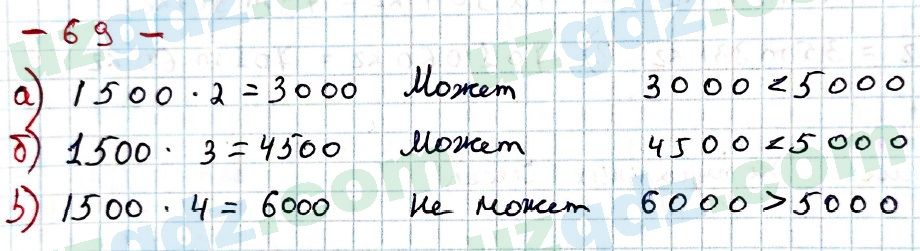 - 69 -
а) 1500 · 2 = 3000 Может 3000 < 5000
б) 1500 · 3 = 4500 Может 4500 < 5000
в) 1500 · 4 = 6000 Не может 6000 > 5000